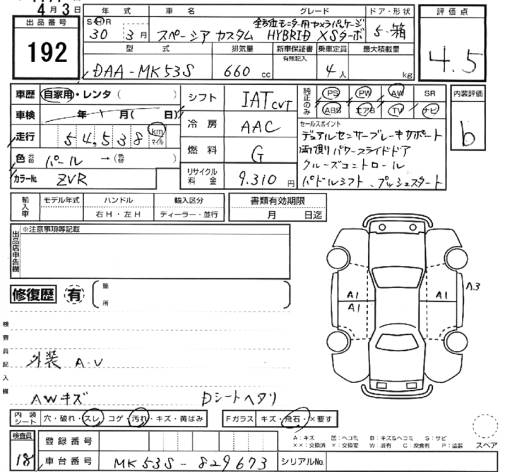 4月3日
出品番号 192
年式 車名 グレード ドア・形状 評価点
SHR 30 3月 スペーシア カスタム 全方位モニター用カメラパッケージ HYBRID XSターボ 5 箱
4.5
型式 排気量 新車保証書 有無記入 乗車定員 最大積載量
DAA-MK53S 660 cc 4人 kg
車歴 自家用・レンタ ( )
シフト IAT CVT
純正のみ PS PW AW SR
ABS エアB TV ナビ
内装評価 b
車検 年 1月( 日)
冷房 AAC
セールスポイント
デュアルセンサーブレーキサポート
両側パワースライドドア
クルーズコントロール
パドルシフト、プッシュスタート
走行 54,538 km マイル
燃料 G
色 パール →(色 )
カラーNo. ZVR
リサイクル料金 9,310 円
輸入車 モデル年式 ハンドル 輸入区分 書類有効期限
右H・左H ディーラー・並行 月 日迄
出品店申告欄 ※注意事項等記載
修復歴 有 箇所
検査員記入欄
外装 A.U
AWキズ Dシートヘタリ
A1 A1 A1 A3
内装シート 穴・破れ・スレ・コゲ・汚れ・キズ・黄ばみ Fガラス キズ・飛石・×要す
検査員 18
登録番号
A:キズ 凹:ヘコミ B:キズ&ヘコミ S:サビ
××:交換済 ×:交換要 W:波有 C:腐食有 P:塗装
スペア
車台番号 MK53S-829673 シリアルNo.